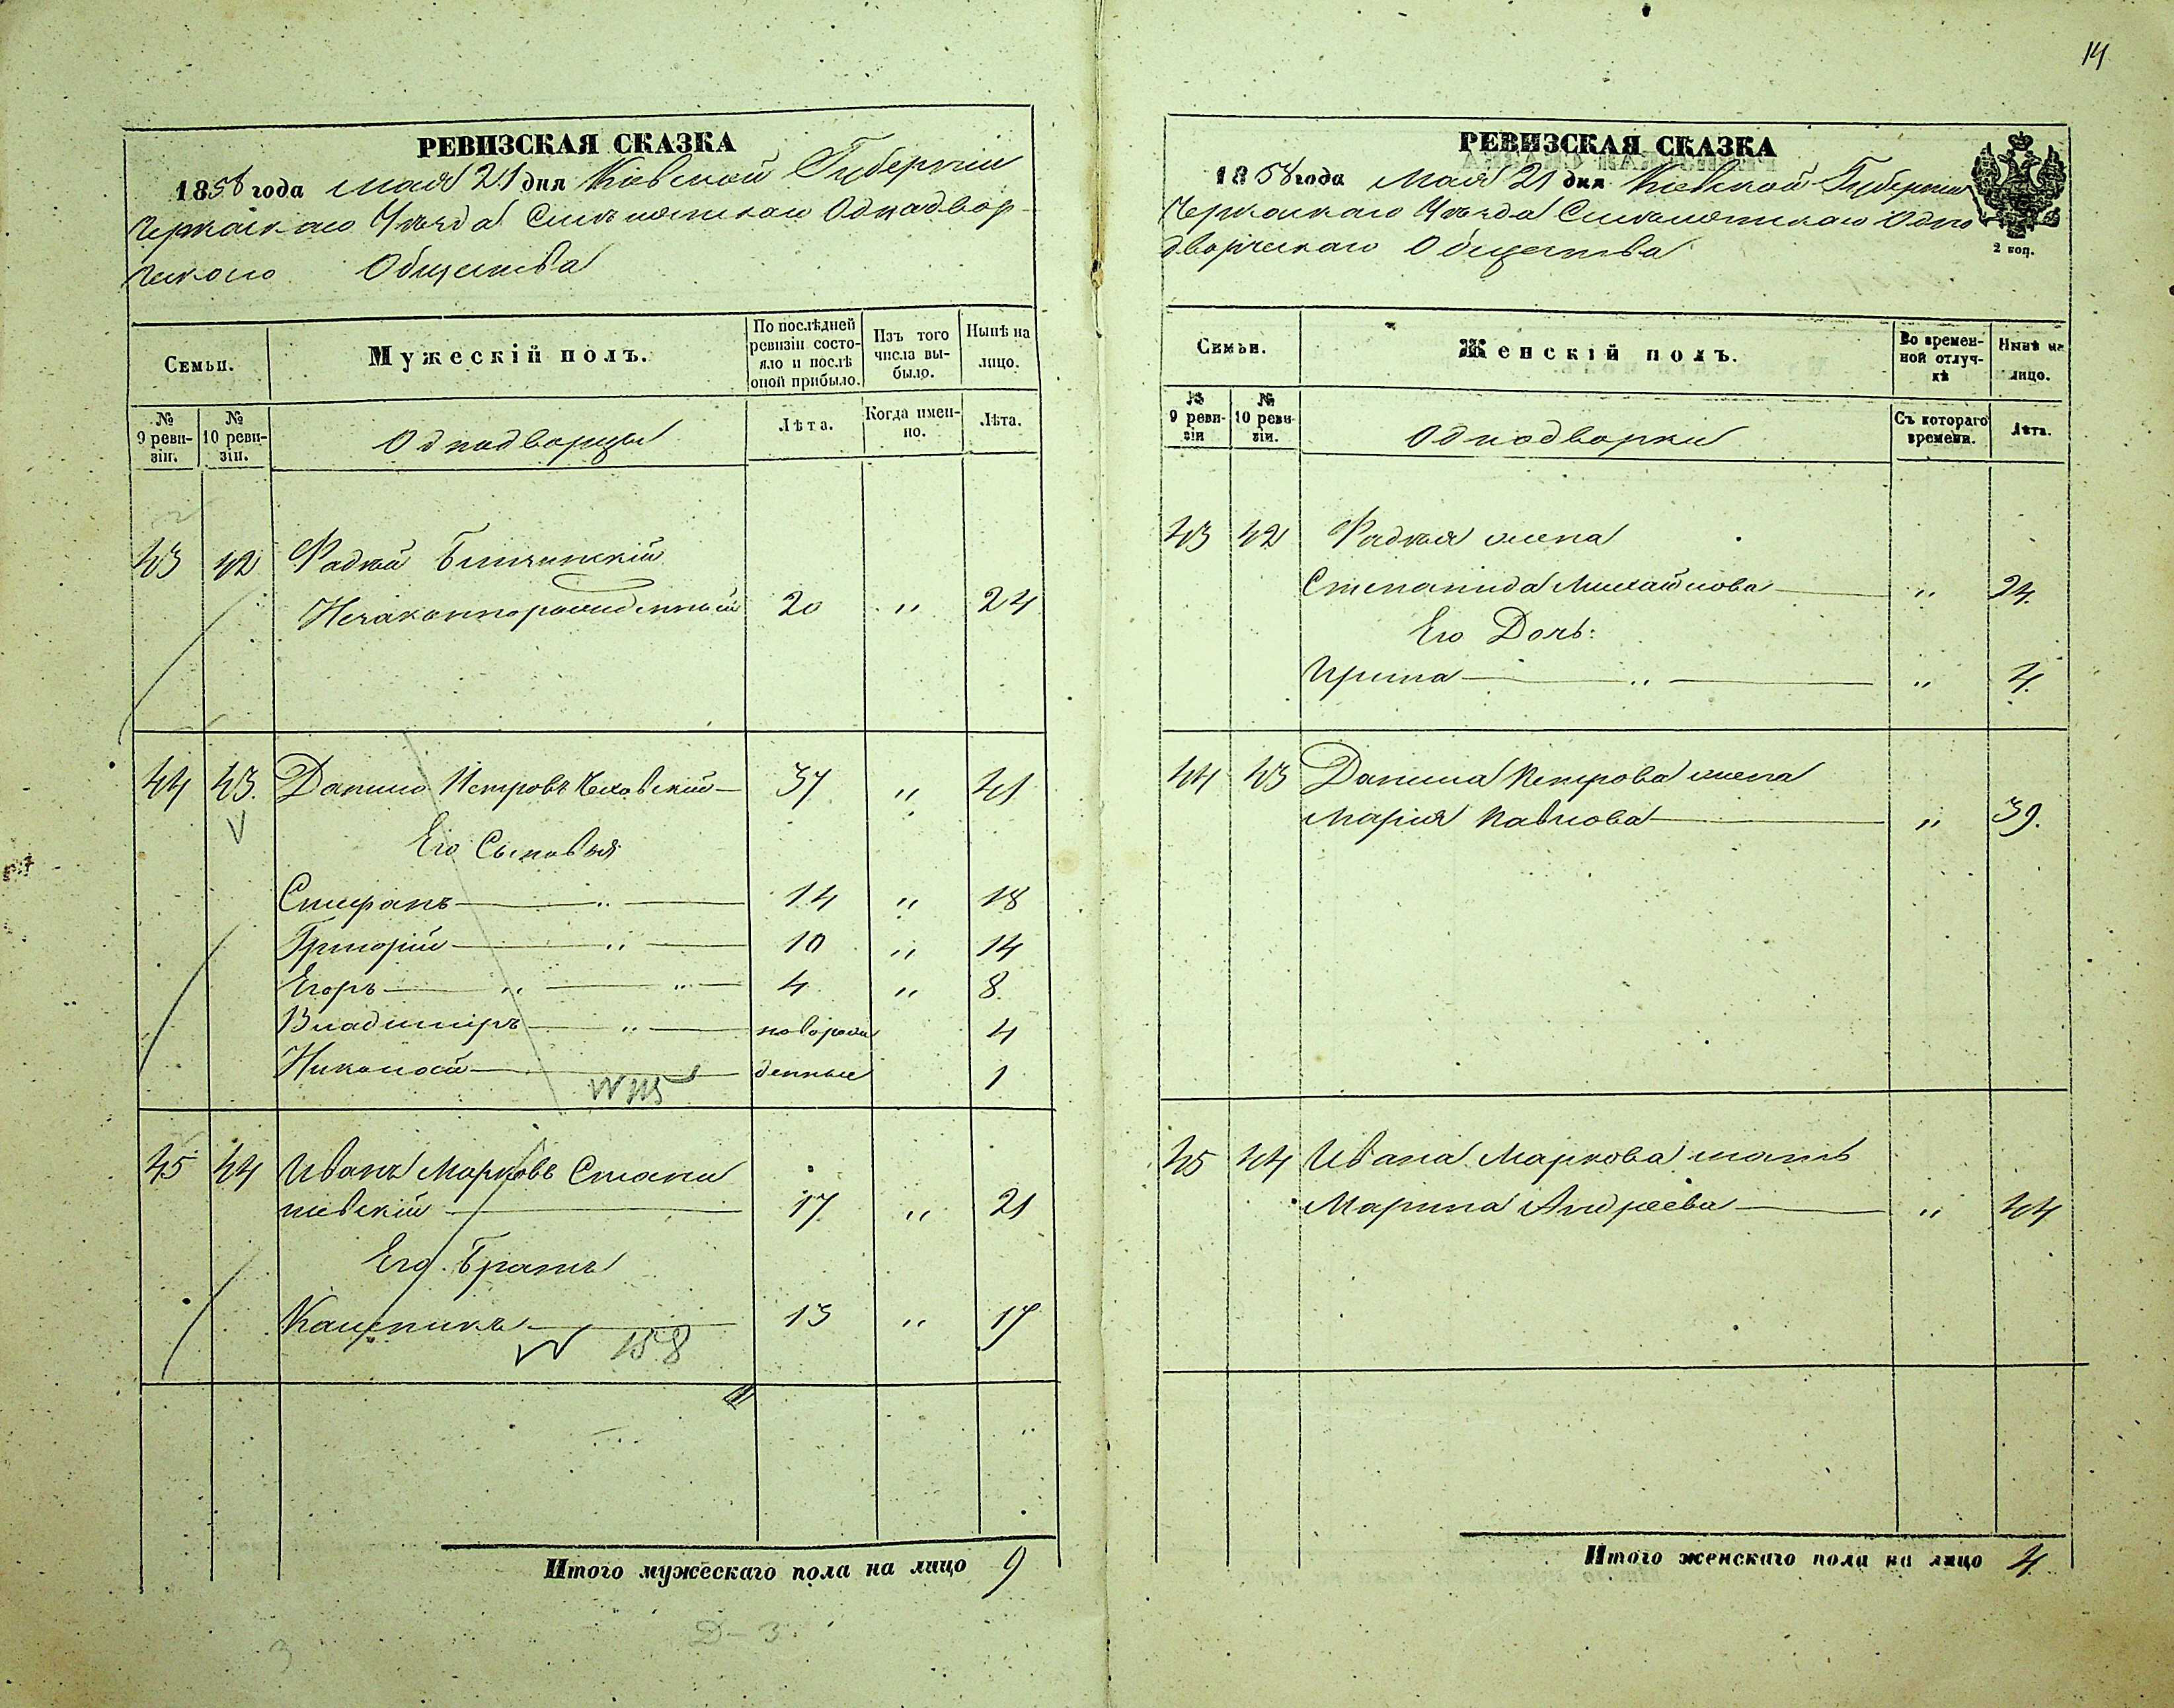 14
РЕВИЗСКАЯ СКАЗКА
1858 года мая 21 дня Кіевской Губерніи
Черкаскаго Уѣзда Смѣлянскаго Однадвор-
ческаго Общества
Семьи.
Мужескій полъ.
По послѣдней ревизіи состояло и послѣ оной прибыло.
Изъ того числа выбыло.
Нынѣ на лицо.
№ 9 ревизіи.
№ 10 ревизіи.
Однодворцы
Лѣта.
Когда именно.
Лѣта.
43 42 Фадѣй
Незаконнорожденный 20 " 24
44 43. Данило Петровъ 37 " 41
Его Сыновья
Стефанъ — " — 14 " 18
Григорій — " — 10 " 14
Егоръ — " — " — 4 " 8
Владимиръ — " — новорож 4
Николай — денные 1
45 44 Иванъ Марковъ Стани
шевскій — 17 " 21
Его Братъ
13 " 17
158
Итого мужескаго пола на лицо 9
Д-3
3
РЕВИЗСКАЯ СКАЗКА
1858 года Мая 21 дня Кіевской Губерніи
Черкаскаго Уѣзда Смѣлянскаго Одно
дворческаго Общества
2 коп.
Семьи.
Женскій полъ.
Во временной отлучкѣ
Нынѣ на лицо.
№ 9 ревизіи
№ 10 ревизіи.
Однодворки
Съ котораго времени.
Лѣта.
43 42 Фадѣя жена
Степанида Михайлова — " 24.
Его Дочь:
Ирина — " — " 4.
44 43 Данила Петрова жена
Марія Павлова — " 39.
45 44 Ивана Маркова мать
Марина Андреева — " 44
Итого женскаго пола на лицо 4